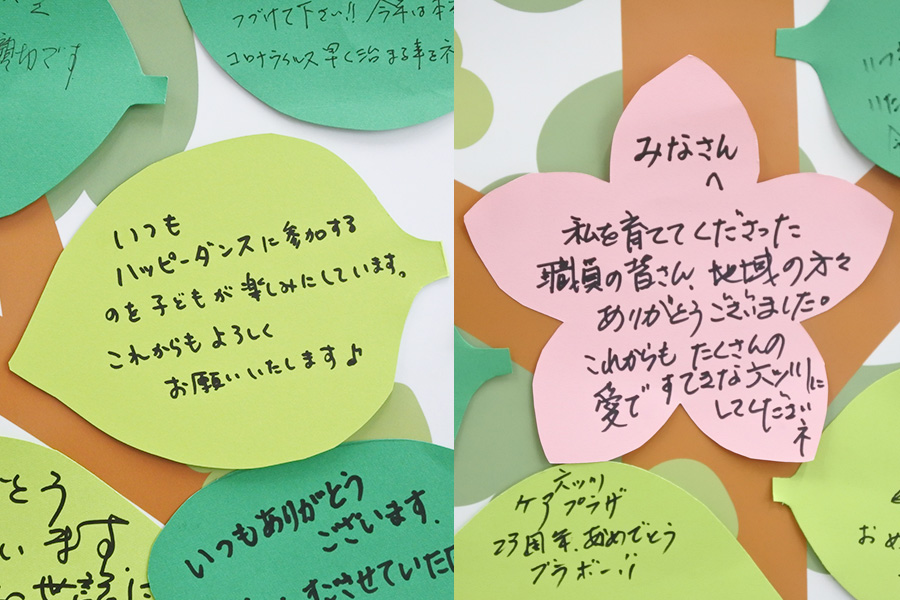 適切です
つづけて下さい!! 今年は
コロナウィルス早く治まる事を
いつも
ハッピーダンスに参加する
のを子どもが楽しみにしています。
これからもよろしく
お願いいたします♪
とう
います
いつもありがとう
ございます.
させていた
みなさん
へ
私を育ててくださった
職員の皆さん、地域の方々
ありがとうございました。
これからも たくさんの
愛で すてきな六ツ川に
してくださいネ
六ツ川
ケアプラザ
23周年、おめでとう
ブラボー!!
いつ
いた
おめ